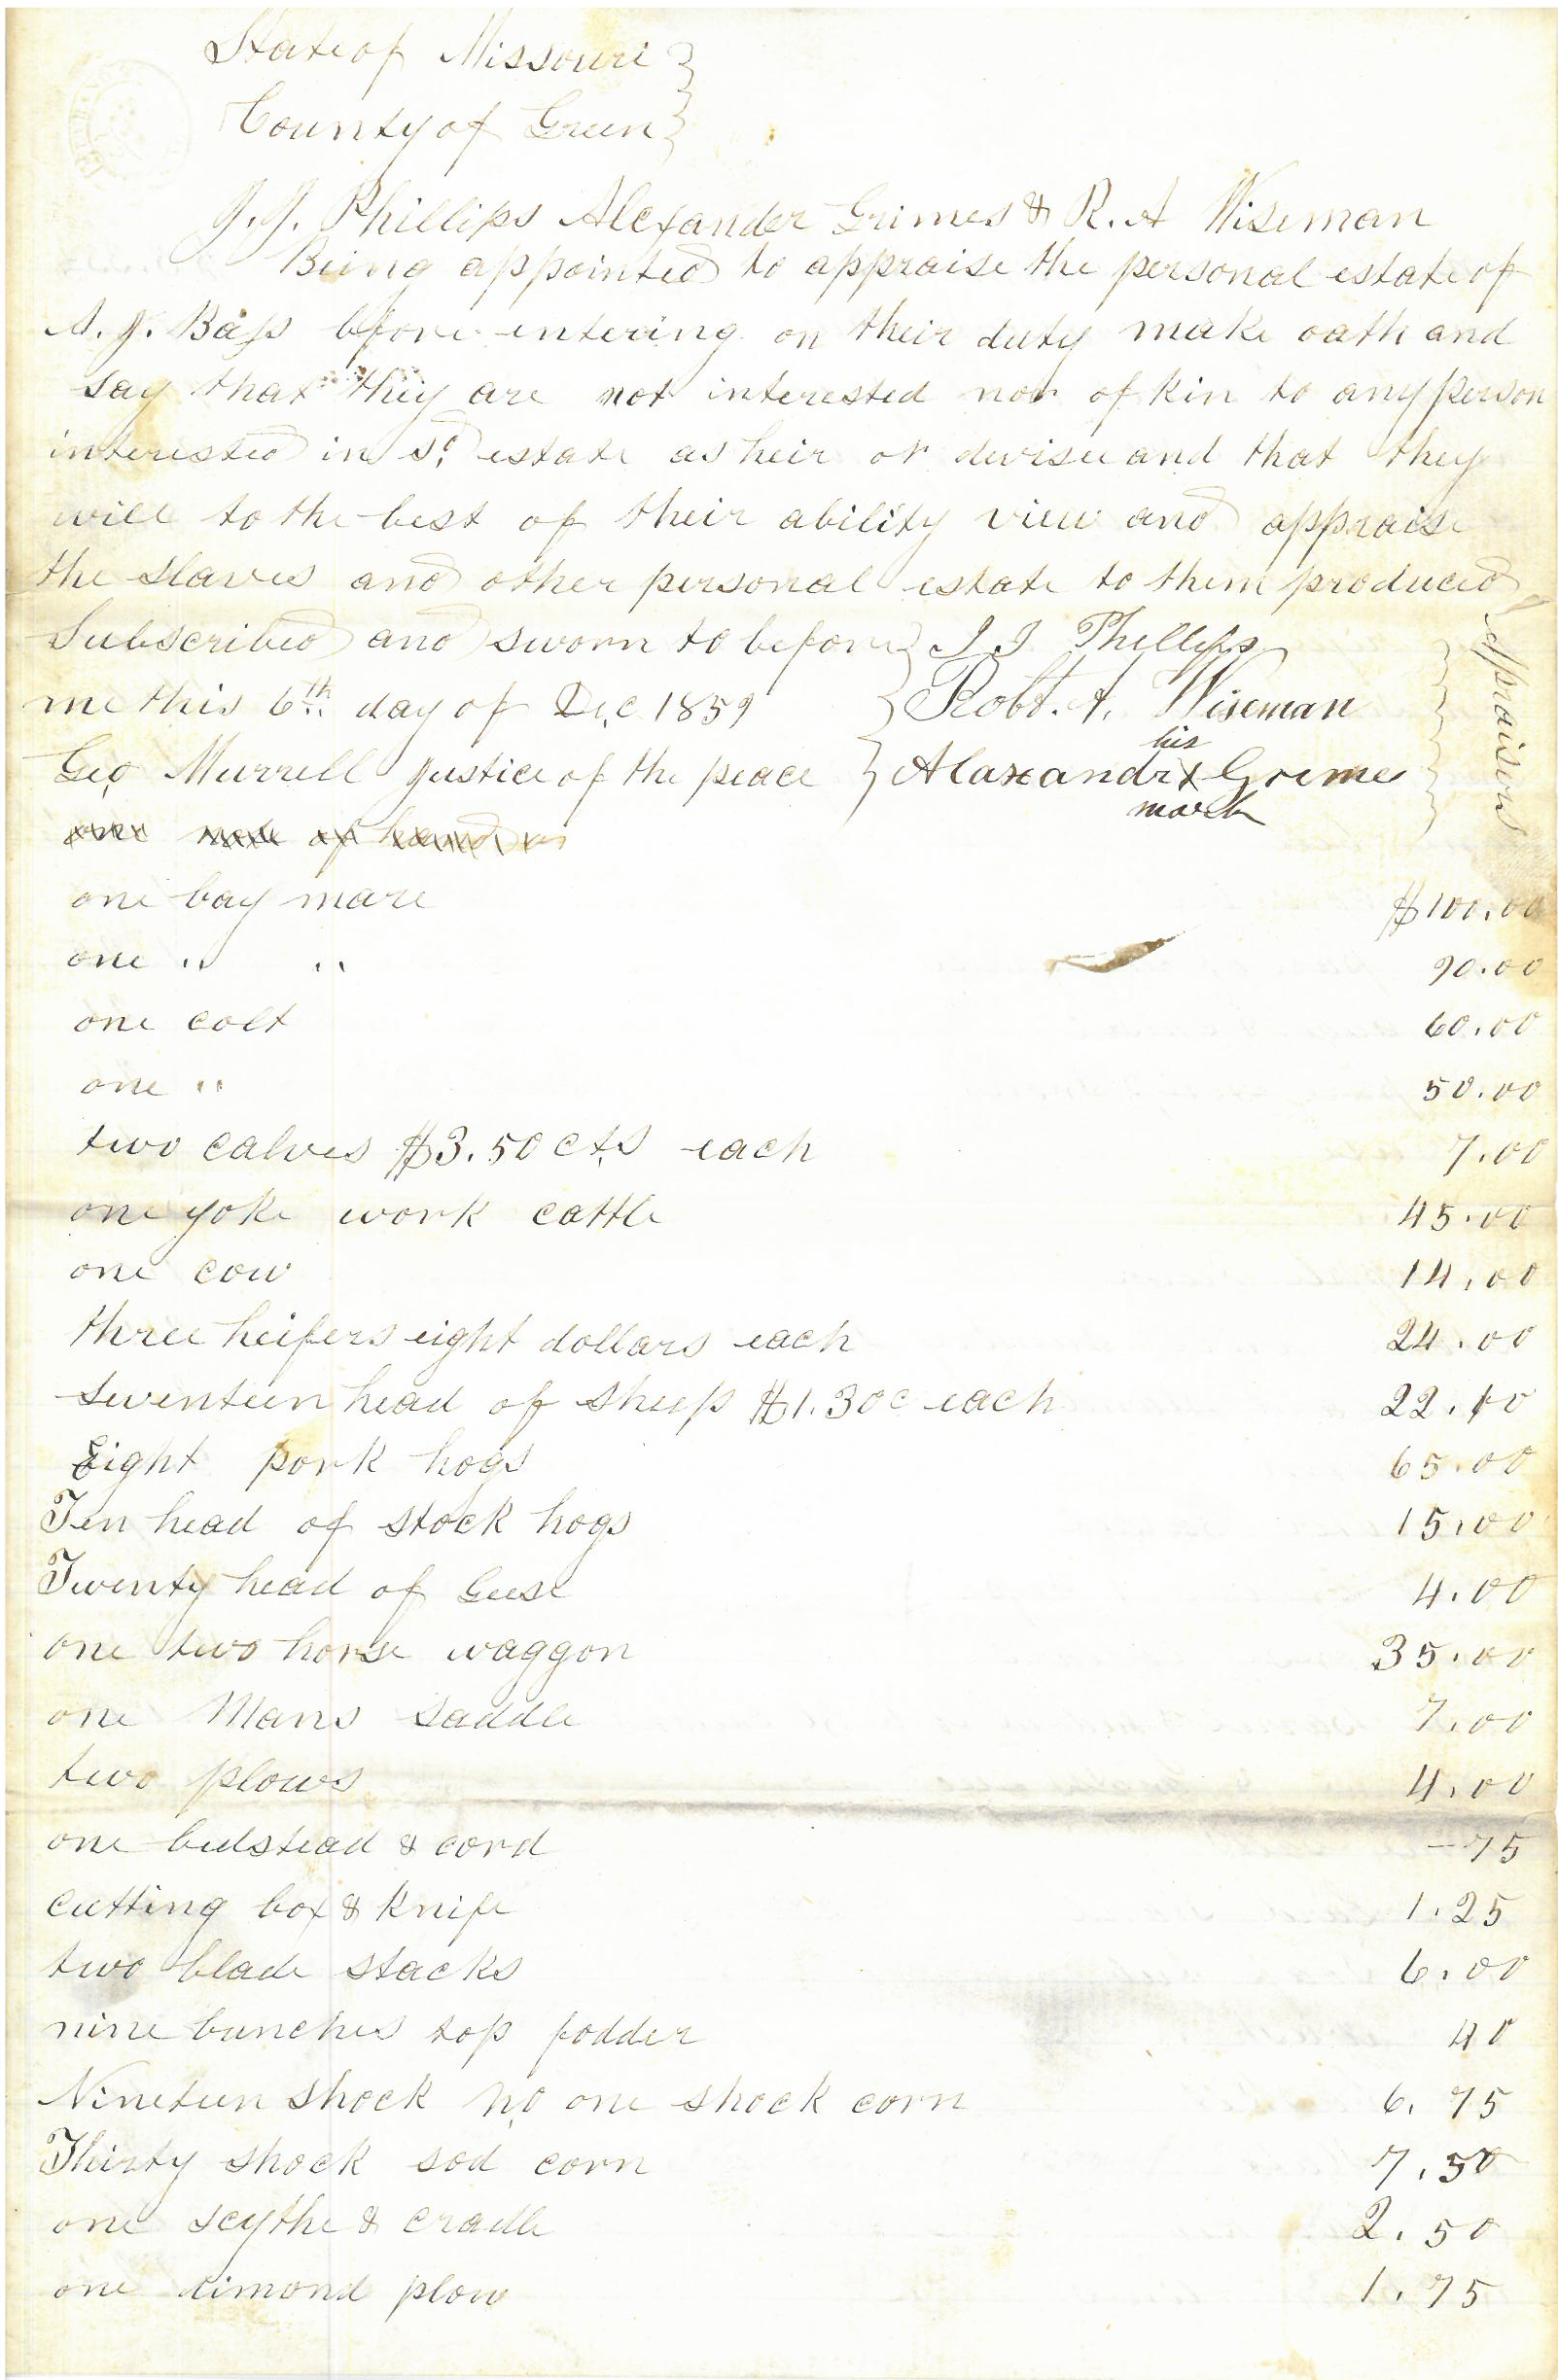 State of Missouri }
County of Green }
J. J. Phillips Alexander Grimes & R. A Wiseman
Being appointed to appraise the personal estate of
A. J. Bass before entering on their duty make oath and
say that they are not interested nor of kin to any person
interested in sd. estate as heir or devisee and that they
will to the best of their ability view and appraise
the slaves and other personal estate to them produced
Subscribed and sworn to before } J J Phillips
me this 6th day of Dec 1859 } Robt. A. Wiseman
his
Geo Murrell Justice of the peace } Alaxandr x Grimes
mark
appraisors
one note of hand on
one bay mare $100.00
one " " 90.00
one colt 60.00
one " 50.00
two calves $3.50 cts each 7.00
one yoke work cattle 45.00
one cow 14.00
three heifers eight dollars each 24.00
seventeen head of sheep $1.30c each 22.10
Eight pork hogs 65.00
Ten head of stock hogs 15.00
Twenty head of Geese 4.00
one two horse waggon 35.00
one Mans saddle 7.00
two plows 4.00
one bedstead & cord -75
cutting box & knife 1.25
two blade stacks 6.00
nine bunches top fodder 40
Nineteen shock no one shock corn 6.75
Thirty shock sod corn 7.50
one scythe & cradle 2.50
one dimond plow 1.75